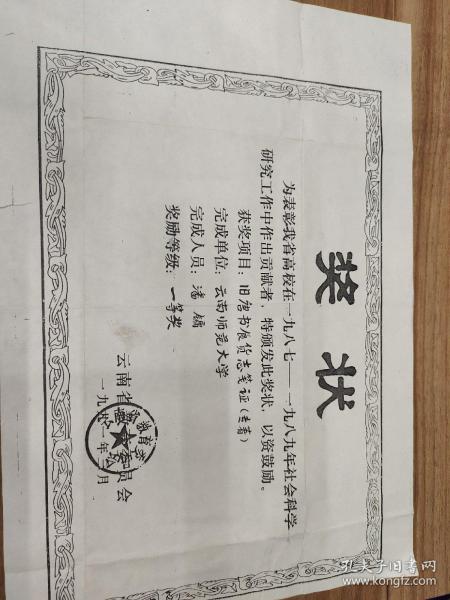 奖状
为表彰我省高校在一九八七——一九八九年社会科学
研究工作中作出贡献者，特颁发此奖状，以资鼓励。
获奖项目：旧唐书食货志笺证（专著）
完成单位：云南师范大学
完成人员：潘镛
奖励等级：一等奖
云南省教育委员会
一九九一年 月
孔夫子旧书网
www.kongfz.com